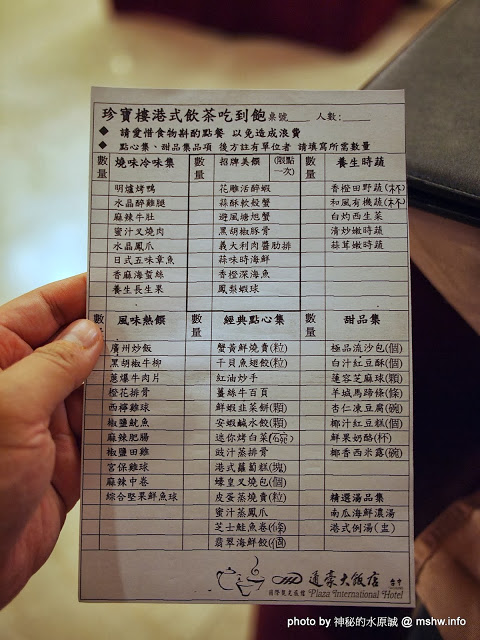 珍寶樓港式飲茶吃到飽 桌號____ 人數:____
◆ 請愛惜食物斟酌點餐 以免造成浪費
◆ 點心集、甜品集品項 後方註有單位者 請填寫所需數量
數量 燒味冷味集 數量 招牌美饌 (限點一次) 數量 養生時蔬
明爐烤鴨 花雕活醉蝦 香橙田野蔬(杯)
水晶醉雞腿 蒜酥軟殼蟹 和風有機蔬(杯)
麻辣牛肚 避風塘旭蟹 白灼西生菜
蜜汁叉燒肉 黑胡椒豚骨 清炒嫩時蔬
水晶鳳爪 義大利肉醬肋排 蒜茸嫩時蔬
日式五味章魚 蒜味時海鮮
香麻海蜇絲 香橙深海魚
養生長生果 鳳梨蝦球
數量 風味熱饌 數量 經典點心集 數量 甜品集
廣州炒飯 蟹黃鮮燒賣(粒) 極品流沙包(個)
黑胡椒牛柳 干貝魚翅餃(粒) 白汁紅豆酥(個)
蔥爆牛肉片 紅油炒手 蓮容芝麻球(顆)
橙花排骨 薑絲牛百頁 羊城馬蹄條(條)
西檸雞球 鮮蝦韭菜餅(顆) 杏仁凍豆腐(碗)
椒鹽魷魚 安蝦鹹水餃(顆) 椰汁紅豆糕(個)
麻辣肥腸 迷你烤白菜(碗) 鮮果奶酪(杯)
椒鹽田雞 豉汁蒸排骨 椰香西米露(碗)
宮保雞球 港式蘿蔔糕(塊)
麻辣中卷 蠔皇叉燒包(個)
綜合堅果鮮魚球 皮蛋蒸燒賣(粒) 精選湯品集
蜜汁蒸鳳爪 南瓜海鮮濃湯
芝士鮭魚卷(條) 港式例湯(盅)
翡翠海鮮餃(個)
通豪大飯店 台中
國際觀光旅館 Plaza International Hotel
photo by 神秘的水原誠 @ mshw.info